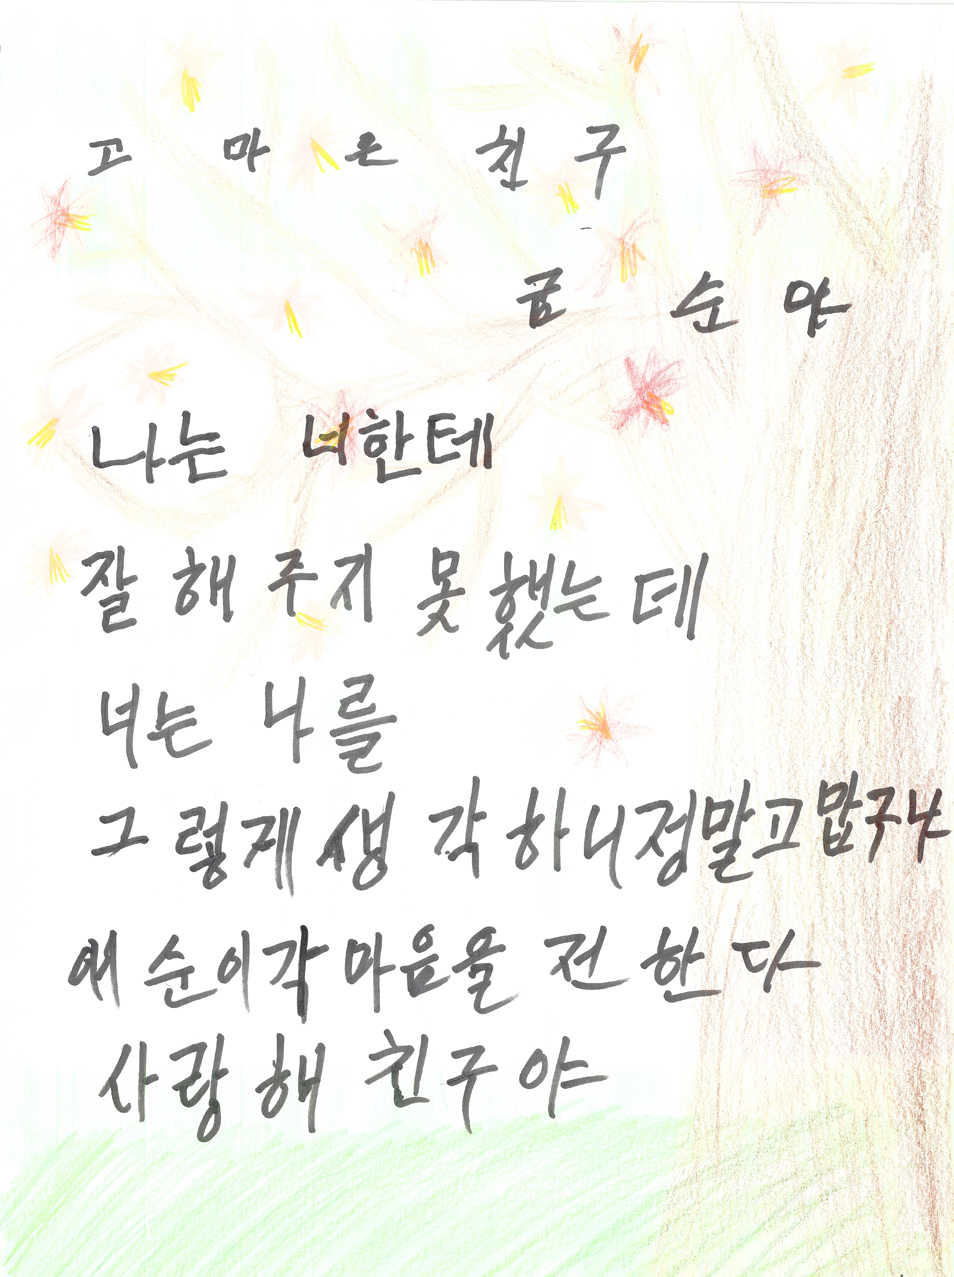 고마운 친구
금순아
나는 너한테
잘 해 주지 못했는데
너는 나를
그렇게 생각하니 정말 고맙구나
애순이가 마음을 전한다
사랑해 친구야